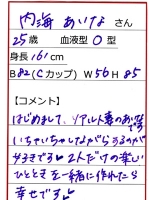 内海 あいな さん
25歳 血液型 O型
身長 161cm
B 82(Cカップ) W 56 H 85
【コメント】
はじめまして、リアルト妻のあいな
です♥
いちゃいちゃしながらするのが
大好きです♥ 2人だけの楽しい
ひとときを一緒に作れたら
幸せです♥